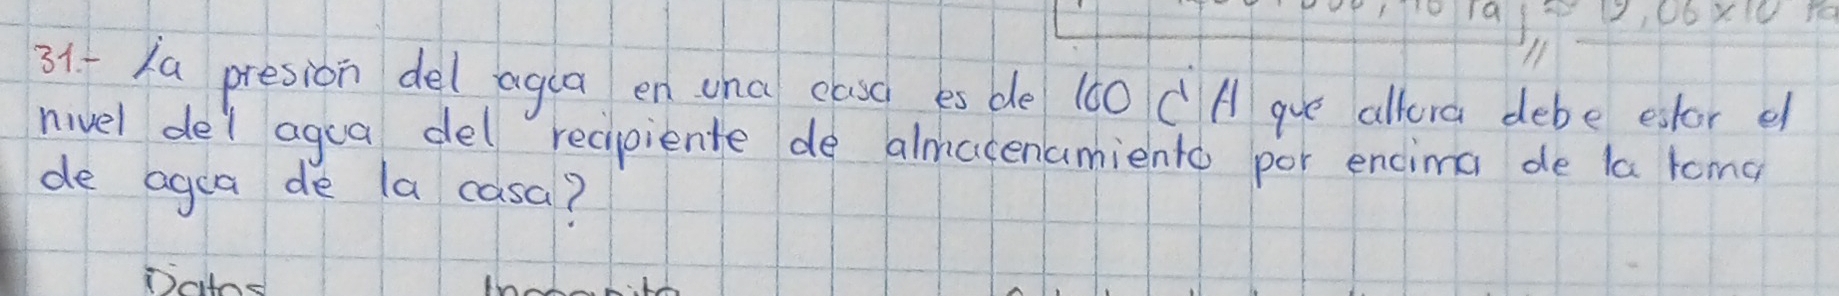 19,06x10
31.- La presion del agua en una casa es de 160 C A que altura debe estar el
nivel del agua del recipiente de almacenamiento por encima de la toma
de agua de la casa?
Datos Incognita